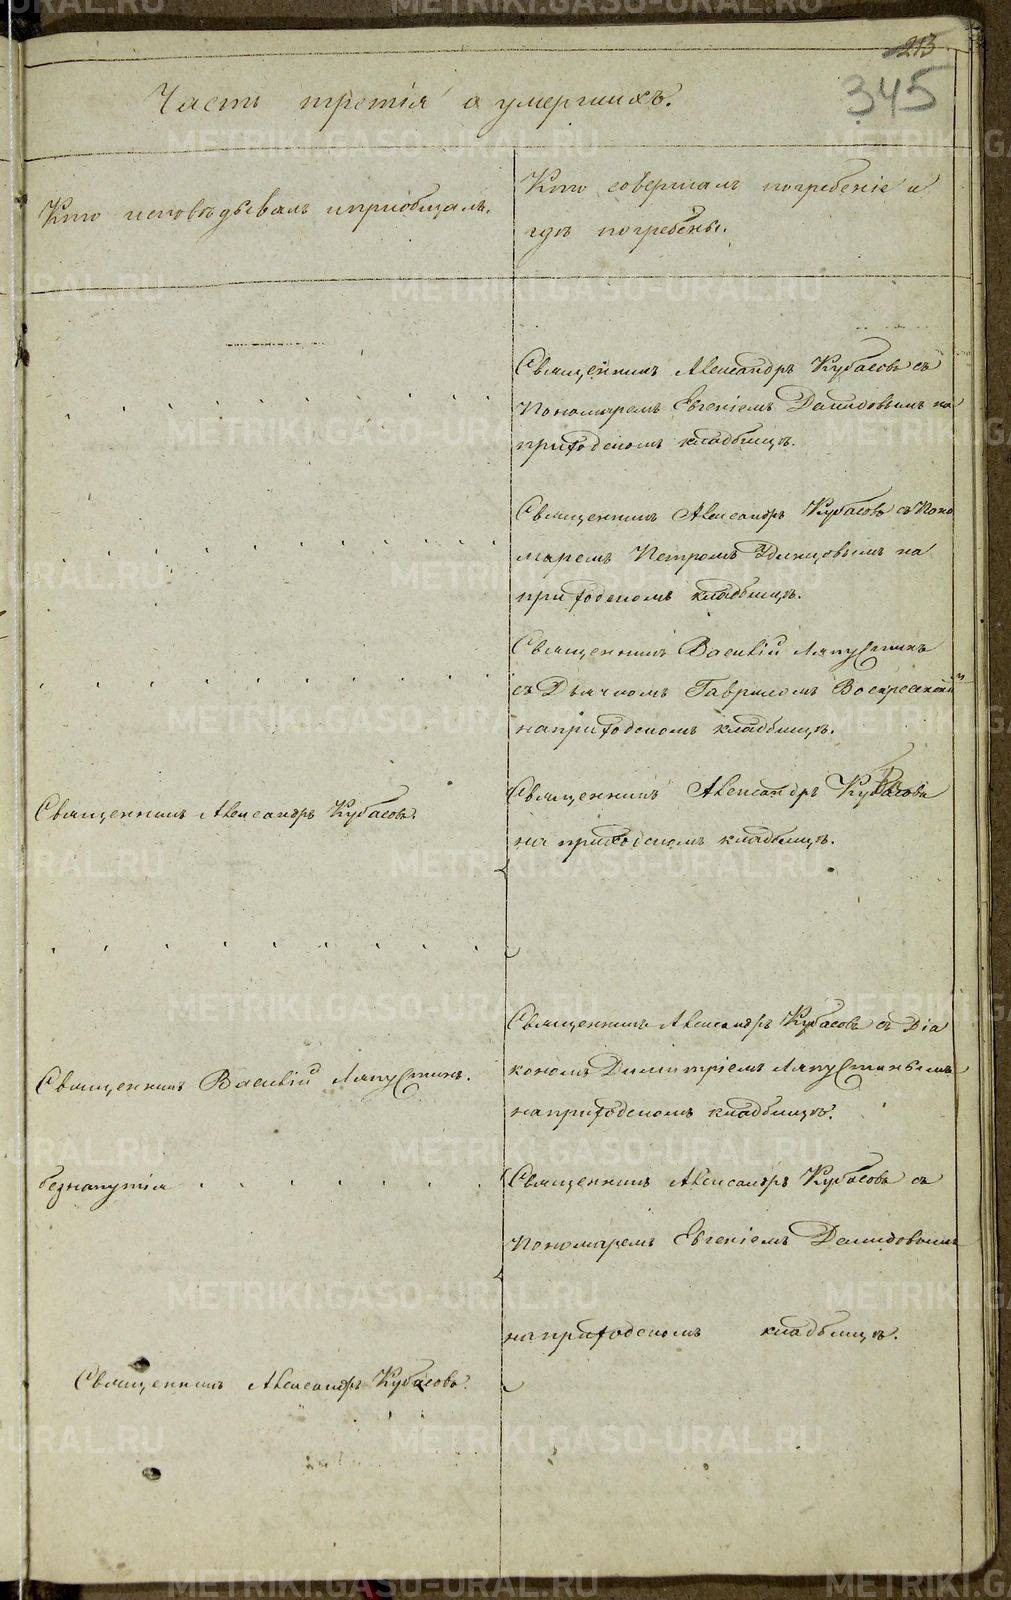 213
345
Часть третія о умершихъ.
Кто исповѣдывалъ и пріобщалъ.
Кто совершалъ погребеніе и
гдѣ погребены.
Священникъ Александръ Кубасовъ съ
Пономаремъ Евгеніемъ Демидовымъ на
приходскомъ кладбищѣ.
Священникъ Александръ Кубасовъ съ Поно
маремъ Петромъ Удинцовымъ на
приходскомъ кладбищѣ.
Священникъ Василій Ляпустинъ
съ Дьячкомъ Гавриломъ Воскресенскимъ
на приходскомъ кладбищѣ.
Священникъ Александръ Кубасовъ.
Священникъ Александръ Кубасовъ
на приходскомъ кладбищѣ.
Священникъ Александръ Кубасовъ съ Діа
кономъ Димитріемъ Ляпустинымъ
на приходскомъ кладбищѣ.
Священникъ Василій Ляпустинъ.
без напутія
Священникъ Александръ Кубасовъ съ
Пономаремъ Евгеніемъ Демидовымъ
на приходскомъ кладбищѣ.
Священникъ Александръ Кубасовъ.
METRIKI.GASO-URAL.RU